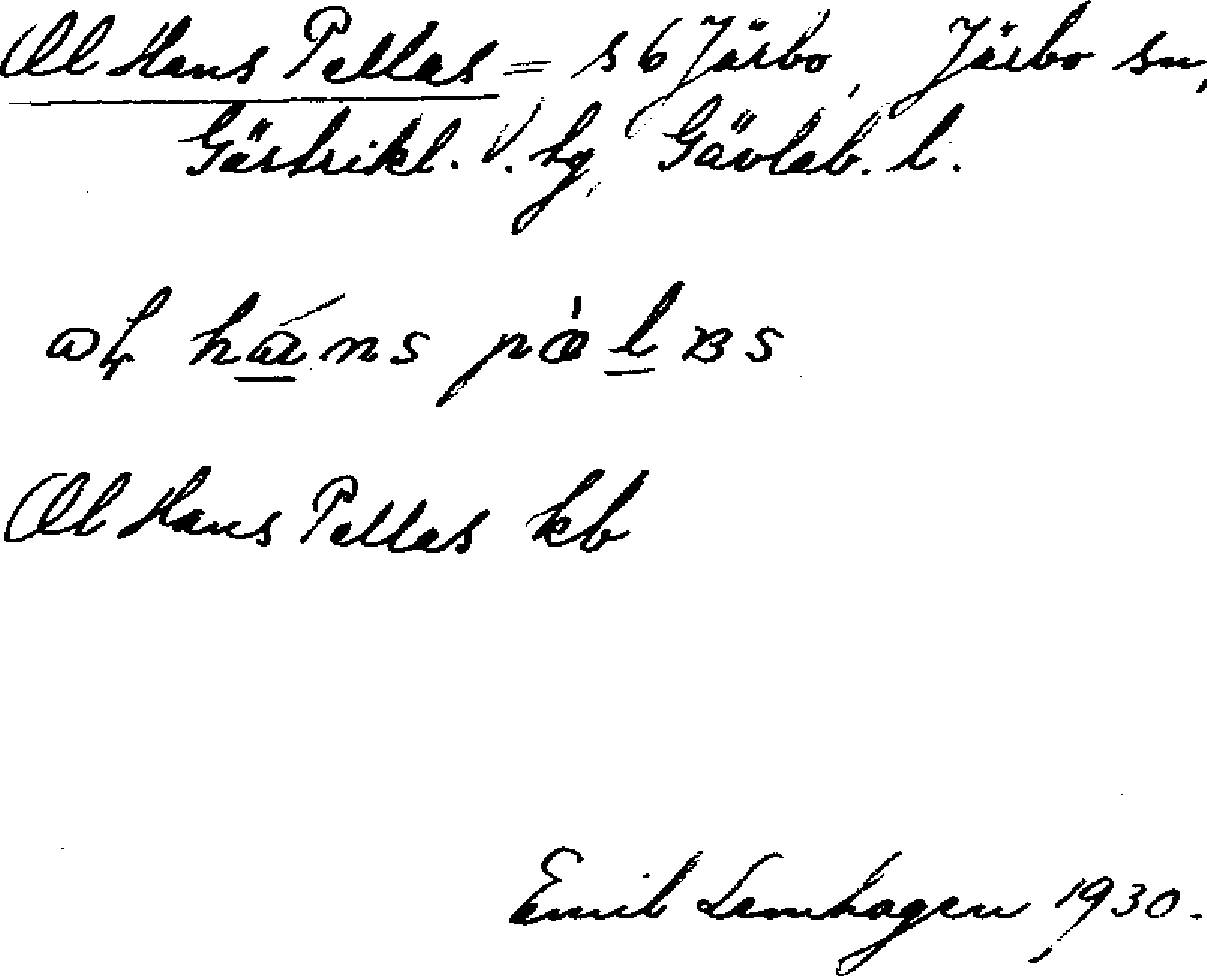 Ol Hans Pellas = s 6 Järbo, Järbo sn,
Gästrikl. V. hg, Gävleb. l.
håns
Ol Hans Pellas kb
Emil Lemhagen, 1930.